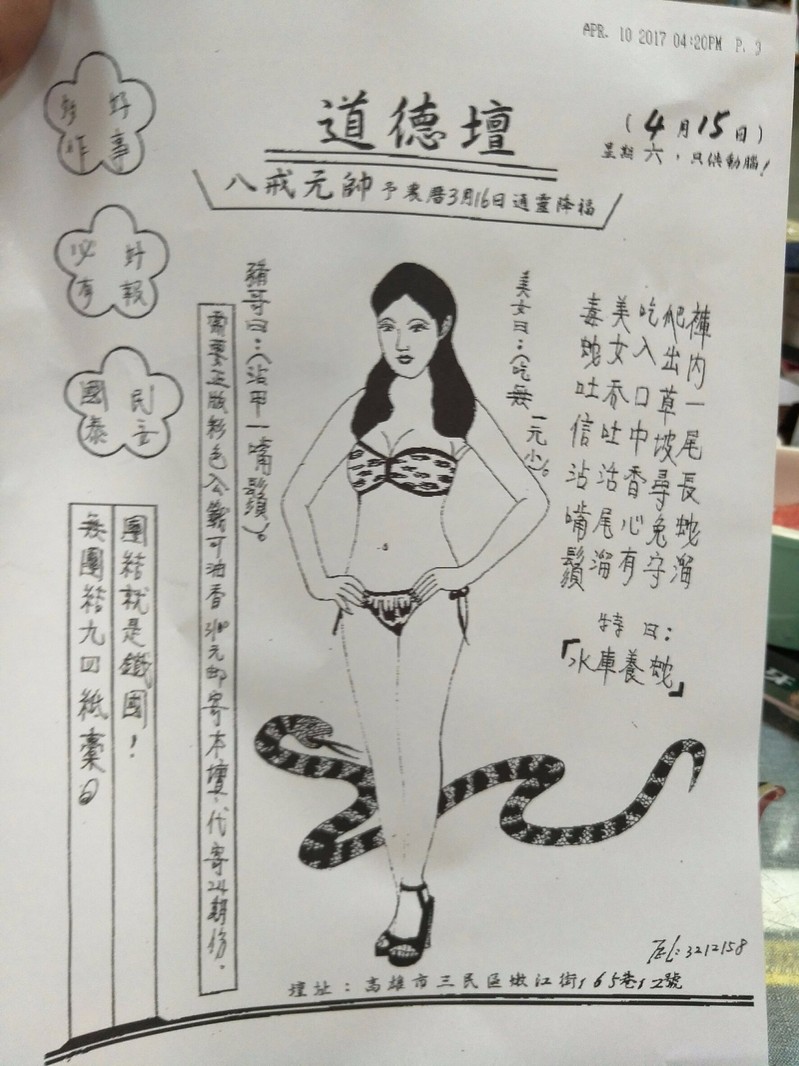 APR. 10 2017 04:20PM P. 3
道德壇
(4月15日)
星期六，只供動腦！
八戒元帥 予農曆3月16日通靈降福
好事
多作
好報
必有
民安
國泰
褲內一尾長蛇溜
爬出草坡尋兔守
吃入口中香心有
美女吞吐沾尾溜
毒蛇吐信沾嘴鬚
特曰：
「水庫養蛇」
美女曰：(吃無一元
豬哥曰：(沾甲一嘴鬚)。
需要正版彩色公籤可油香 元郵寄本壇，代寄24期份。
團結就是鐵國！
無團結九四紙橐
TEL:3212158
壇址：高雄市三民區嫩江街165巷12號